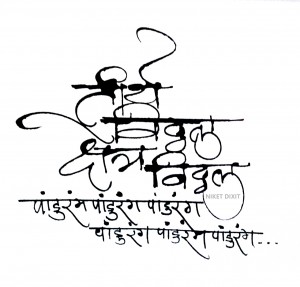 तीर्थ
विठ्ठल
क्षेत्र विठ्ठल
NIKET DIXIT
पांडुरंग पांडुरंग पांडुरंग
पांडुरंग पांडुरंग पांडुरंग...